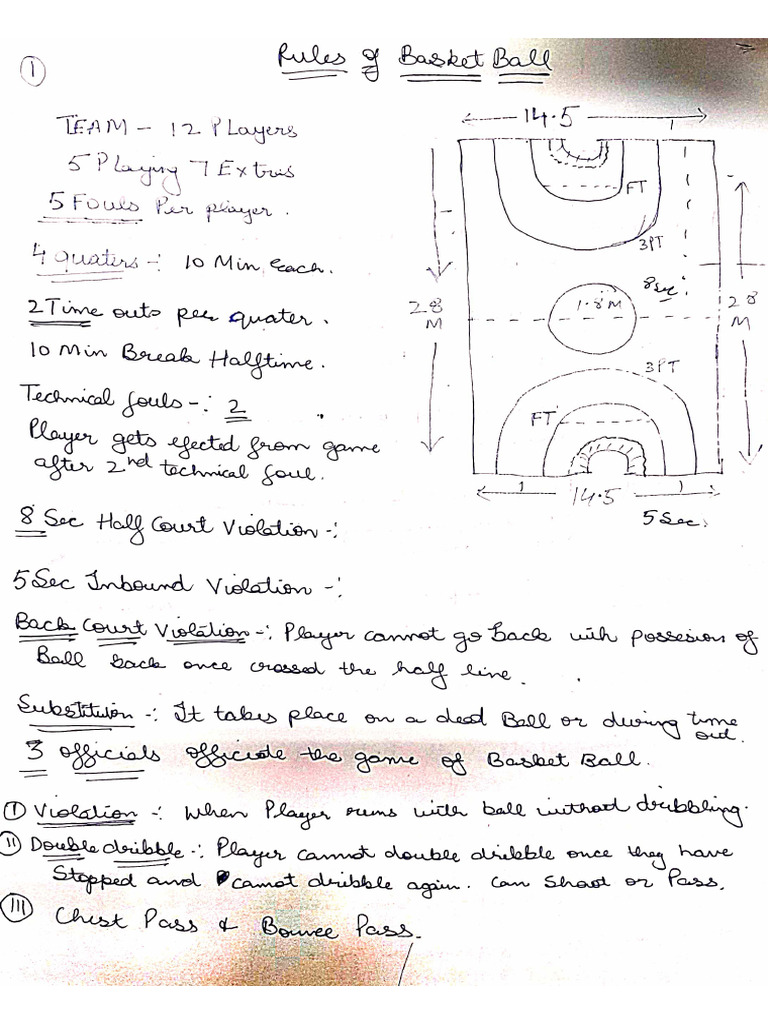 Rules of Basket Ball
1
TEAM - 12 Players
5 Playing 7 Extris
5 Fouls Per player.
4 quaters -: 10 Min Each.
2 Time outs per quater.
10 Min Break Halftime.
Technical fouls -: 2
Player gets ejected from game
after 2nd technical foul.
14.5
FT
3PT
8 sec
1.8 M
28
M
28
M
3PT
FT
14.5
5 Sec.
8 Sec Half Court Violation -:
5 Sec Inbound Violation -:
Back Court Violation -: Player cannot go back with possesion of
Ball back once crossed the half line.
Substitution -: It takes place on a dead Ball or during time
out.
3 officials officiate the game of Basket Ball.
I Violation -: When Player runs with ball without dribbling.
II Double dribble -: Player cannot double dribble once they have
Stopped and cannot dribble again. Can Shoot or Pass.
III Chest Pass & Bounce Pass.